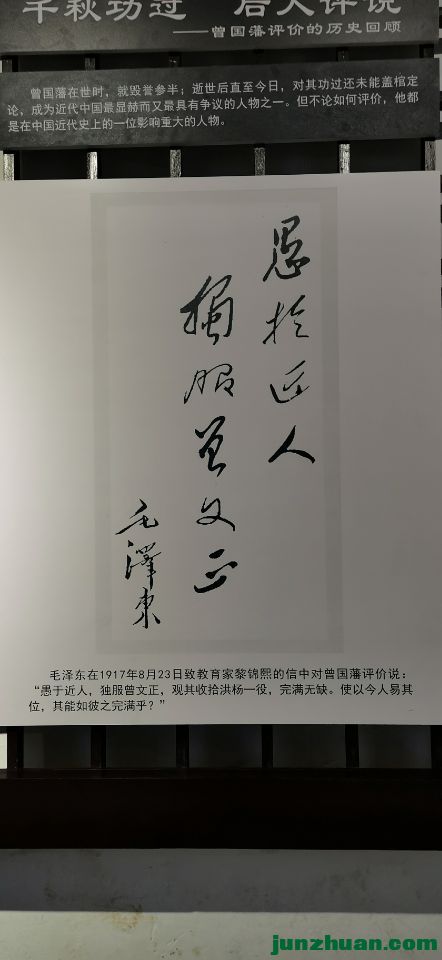 千秋功过 后人评说
——曾国藩评价的历史回顾
曾国藩在世时，就毁誉参半；逝世后直至今日，对其功过还未能盖棺定
论，成为近代中国最显赫而又最具有争议的人物之一。但不论如何评价，他都
是在中国近代史上的一位影响重大的人物。
愚於近人
独服曾文正
毛泽东
毛泽东在1917年8月23日致教育家黎锦熙的信中对曾国藩评价说：
“愚于近人，独服曾文正，观其收拾洪杨一役，完满无缺。使以今人易其
位，其能如彼之完满乎？”
junzhuan.com